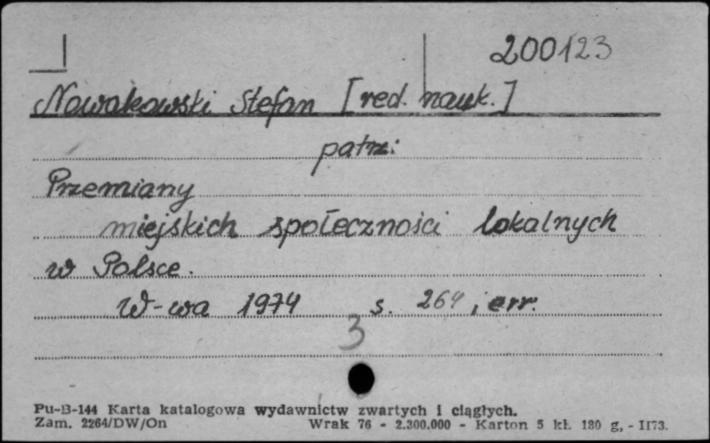 200123
Nowakowski Stefan [red. nauk.]
patrz:
Przemiany
miejskich społeczności lokalnych
w Polsce.
W-wa 1974 s. 264, err.
3
Pu-B-144 Karta katalogowa wydawnictw zwartych i ciągłych.
Zam. 2264/DW/On Wrak 76 - 2.300.000 - Karton 5 kl. 180 g, - II73.